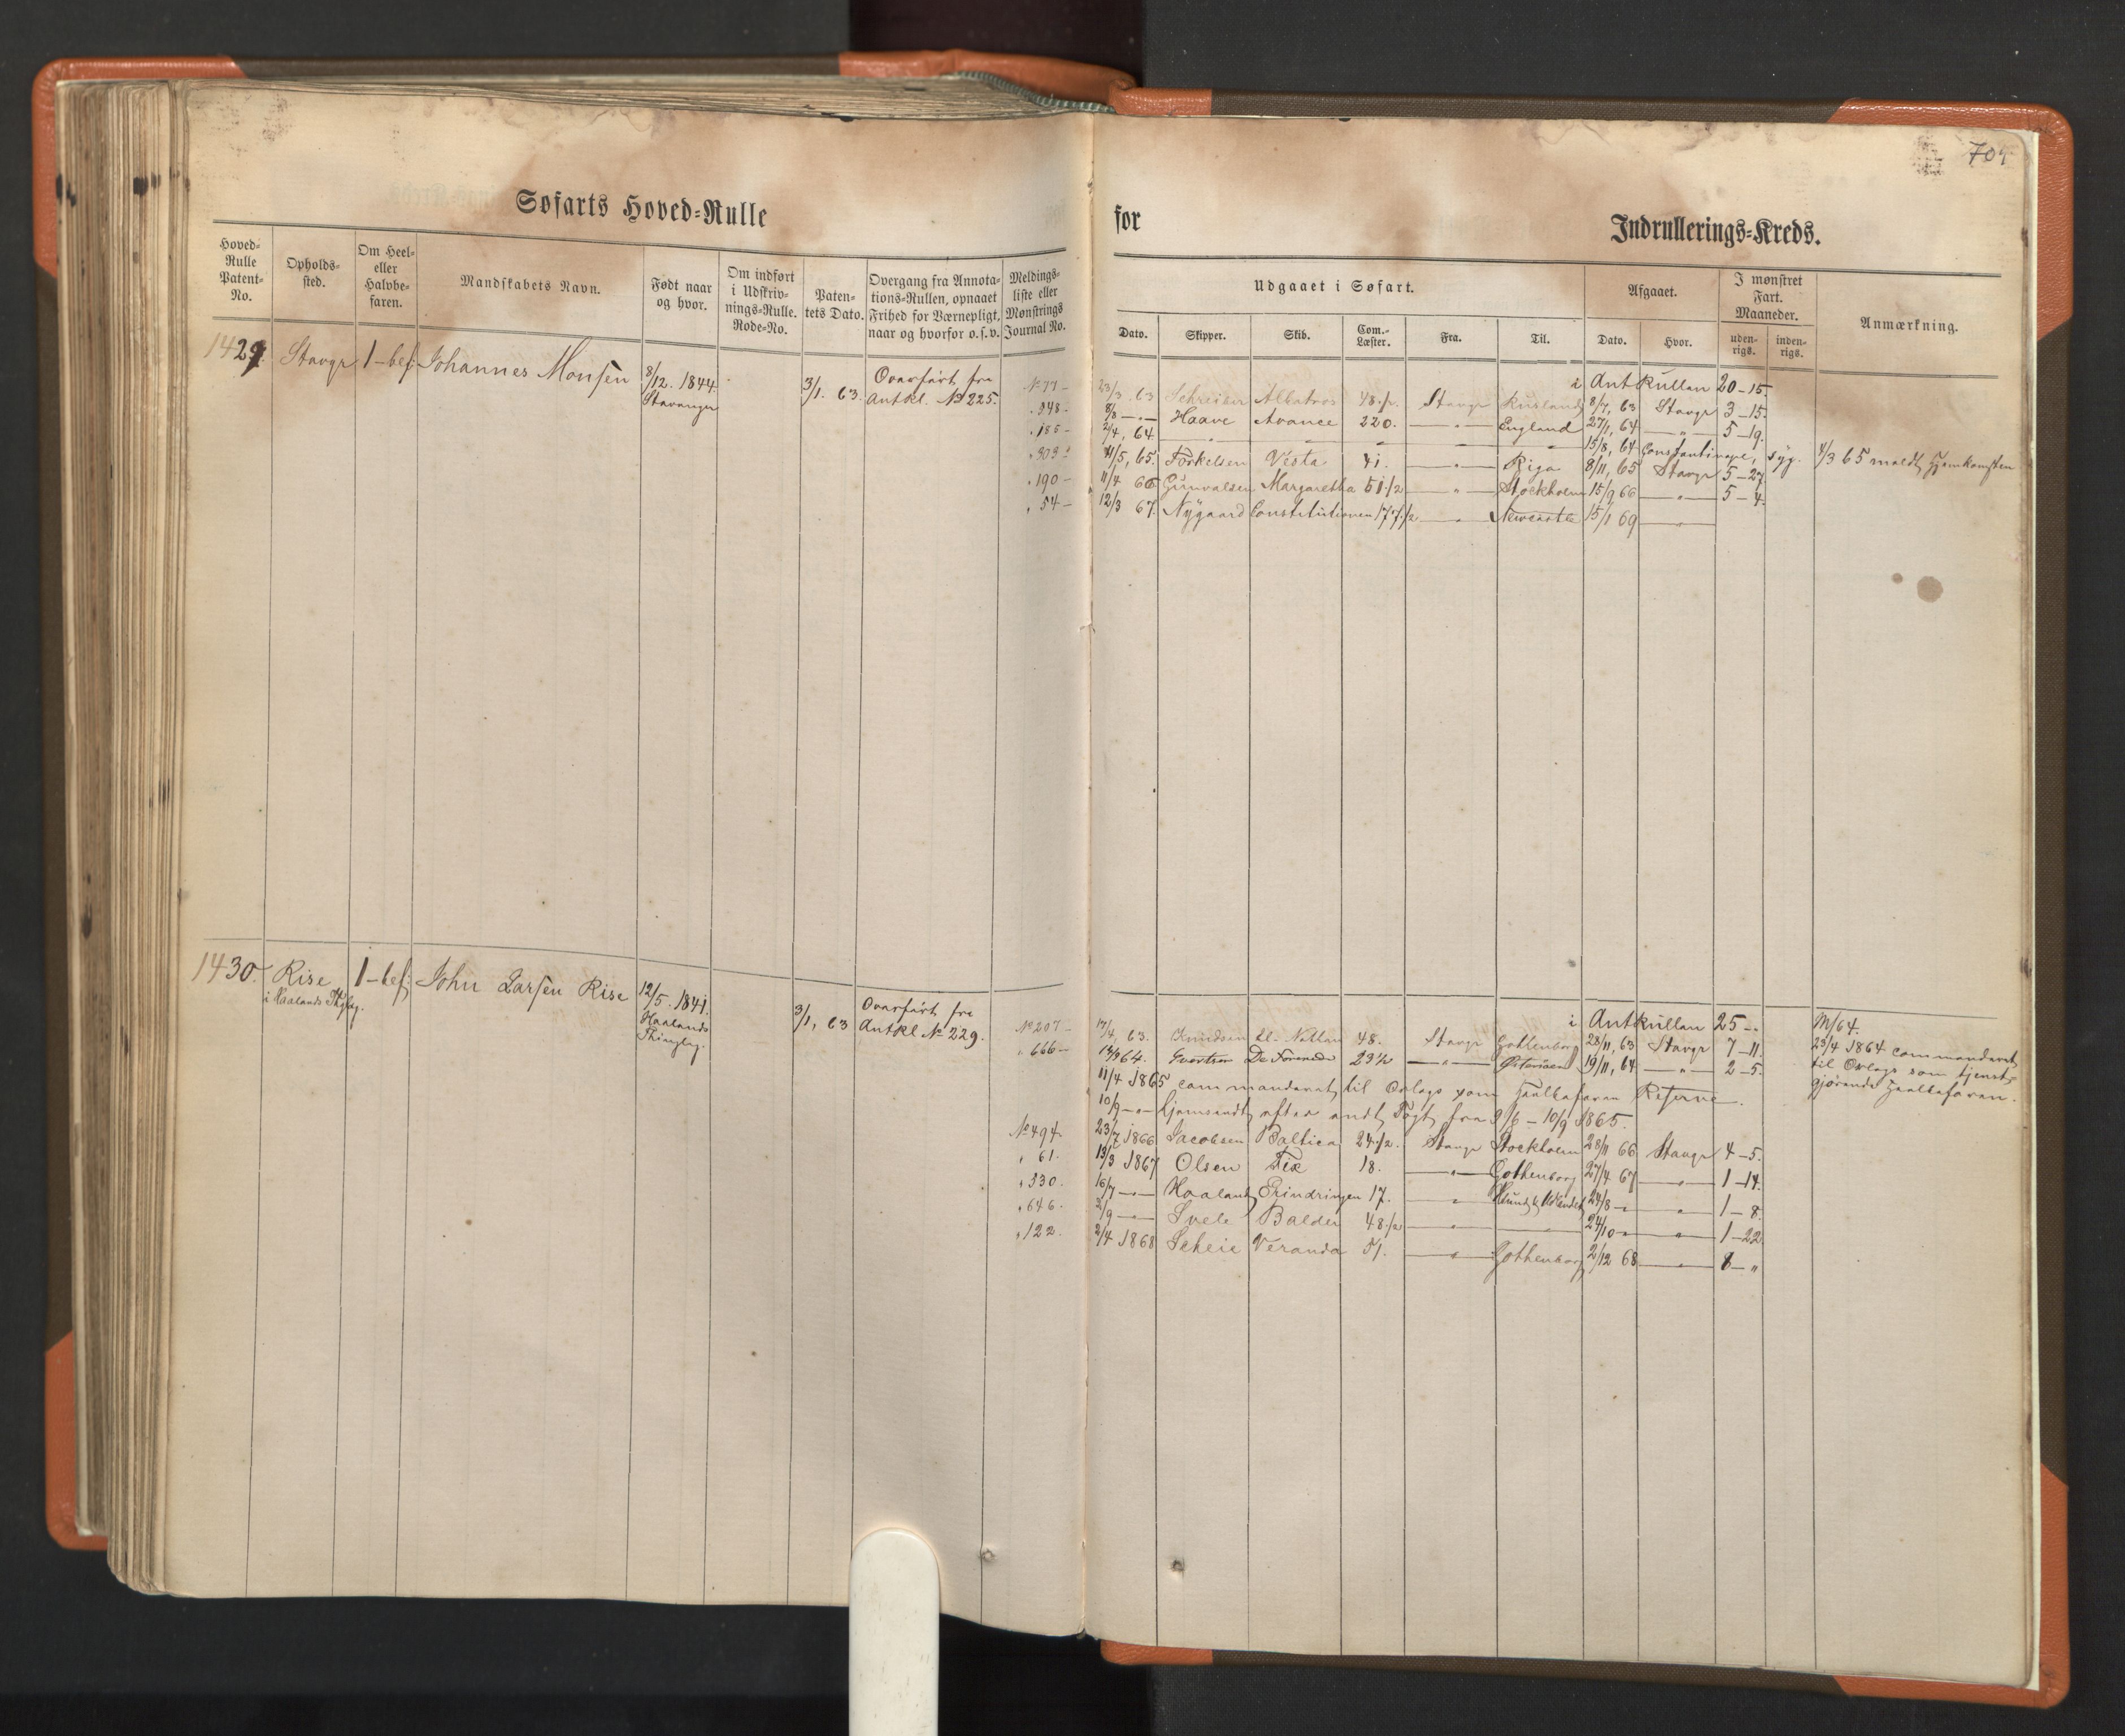 704
Søfarts Hoved-Rulle
for Indrullerings-Kreds.
Hoved-Rulle Patent-No. Opholds-sted. Om Heel- eller Halvbe-faren. Mandskabets Navn. Født naar og hvor. Om indført i Udskriv-nings-Rulle. Rode-No. Paten-tets Dato. Overgang fra Annota-tions-Rullen, opnaaet Frihed for Værnepligt, naar og hvorfor o.s.v. Meldings-liste eller Mønstrings Journal No.
Udgaaet i Søfart. Afgaaet. I mønstret Fart. Maaneder. Anmærkning.
Dato. Skipper. Skib. Com.-Læster. Fra. Til. Dato. Hvor. uden-rigs. inden-rigs.
1429. Stavgr 1-bef: Johannes Monsen 8/12. 1844. Stavanger 3/1. 63. Overført fra Antkl. No 225.
i Antrullen 20-15.
No 77- 23/3. 63 Schreiber Albatros 48.1/2 Stavgr Rusland 8/7, 63 Stavgr 3-15.
" 348- 8/8 -"- Haave Avance 220. -"- England 27/1, 64 -"- 5-19.
" 185- 2/4, 64 -"- -"- " " " 15/8, 64 Constantinopel, syg. 4/3 65 meldt Hjemkomsten
" 303- 11/5, 65. Torkelsen Vesta 41. -"- Riga 8/11, 65 Stavgr 5-27.
" 190- 11/4 66 Gunvalsen Margaretha 51.1/2 -"- Stockholm 15/9 66 -"- 5-4.
" 54- 12/3 67. Nygaard Constitutionen 177.1/2 -"- Newcastle 15/1 69 -"-
1430. Rise i Haalands Thglag. 1-bef: John Larsen Rise 12/5. 1841. Haalands Thinglag. 3/1, 63 Overført fra Antkl No 229.
i Antrullen 25-" M/64.
No 207- 17/4, 63. Knudsen 48. Stavgr Gothenborg 28/11, 63 Stavgr 7-11. 23/4 1864 commanderet
" 666- 14/9 64. De Forenede 23 1/2 -"- 19/11, 64 -"- 2-5. til Orlogs som tjenst-
11/4 1865 commanderet til Orlogs som Heelbefaren Reserve. gjørende Heelbefaren.
10/9 -"- hjemsendt efter endt Togt fra 9/6 - 10/9 1865.
No 494. 23/7 1866 Jacobsen Baltica 24.1/2. Stavgr Stockholm 28/11 66 Stavgr 4-5.
" 61. 13/3 1867 Olsen Fix 18. -"- Gothenborg 27/4 67 -"- 1-14.
" 330. 16/7 -"- Haaland Erindringen 17. " 24/8 -"- " 1-8.
" 646. 2/9 -"- Svele Balder 48.1/2 -"- -"- 24/10 -"- " 1-22
" 122. 2/4 1868 Scheie Veranda 51. -"- Gothenborg 2/12 68 -"- 8-"